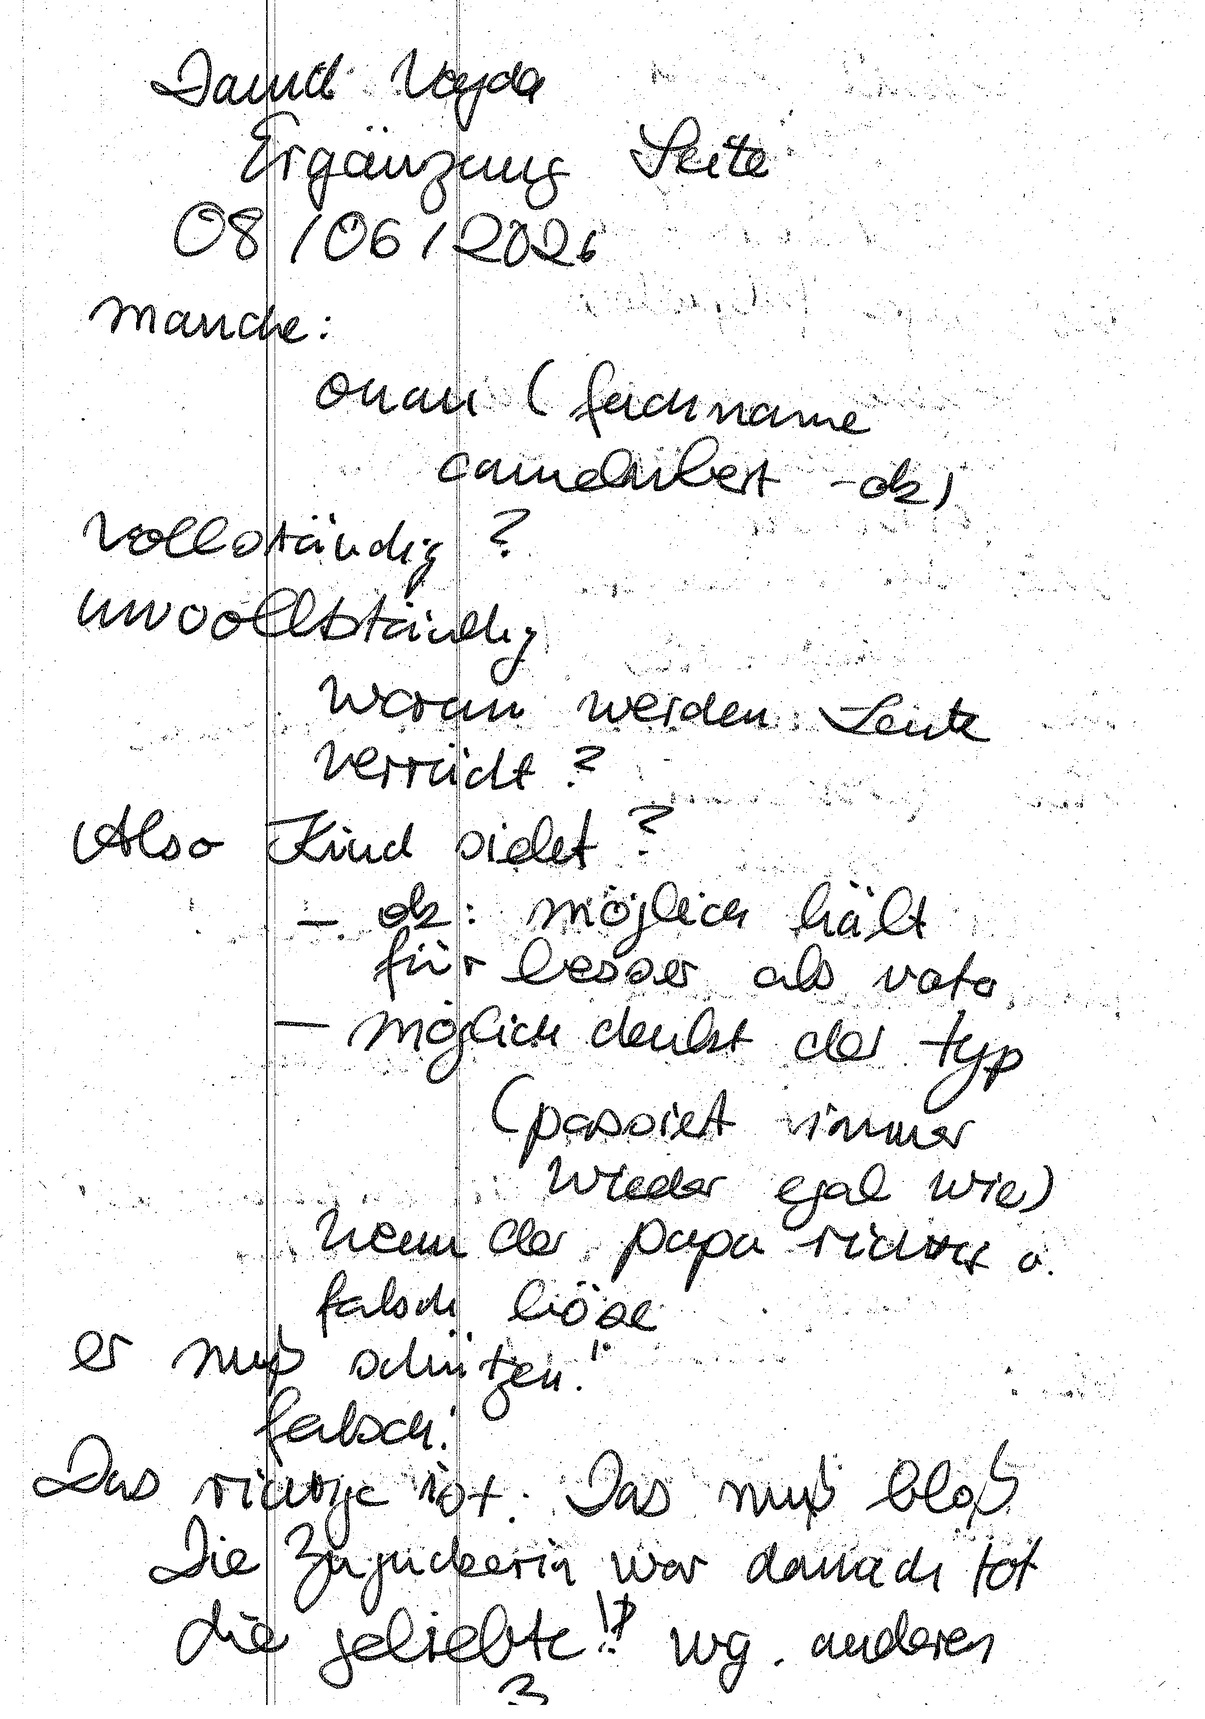 David Vajda
Ergänzung Seite
08/06/2026
Manche:
onan (fachname
-ok)
Vollständig?
unvollständig
Warum werden Leute
verrückt?
Also Kind sieht?
- ok: möglich hält
für besser als vata
- möglich denkt der typ
(passiert immer
wieder egal wie)
Wenn der papa richtig o.
falsch böse
er muß schützen!"
falsch:
Das richtige ist: Das muß bloß
Die Zuguckerin war danach tot
die geliebte!? wg. anderen
3